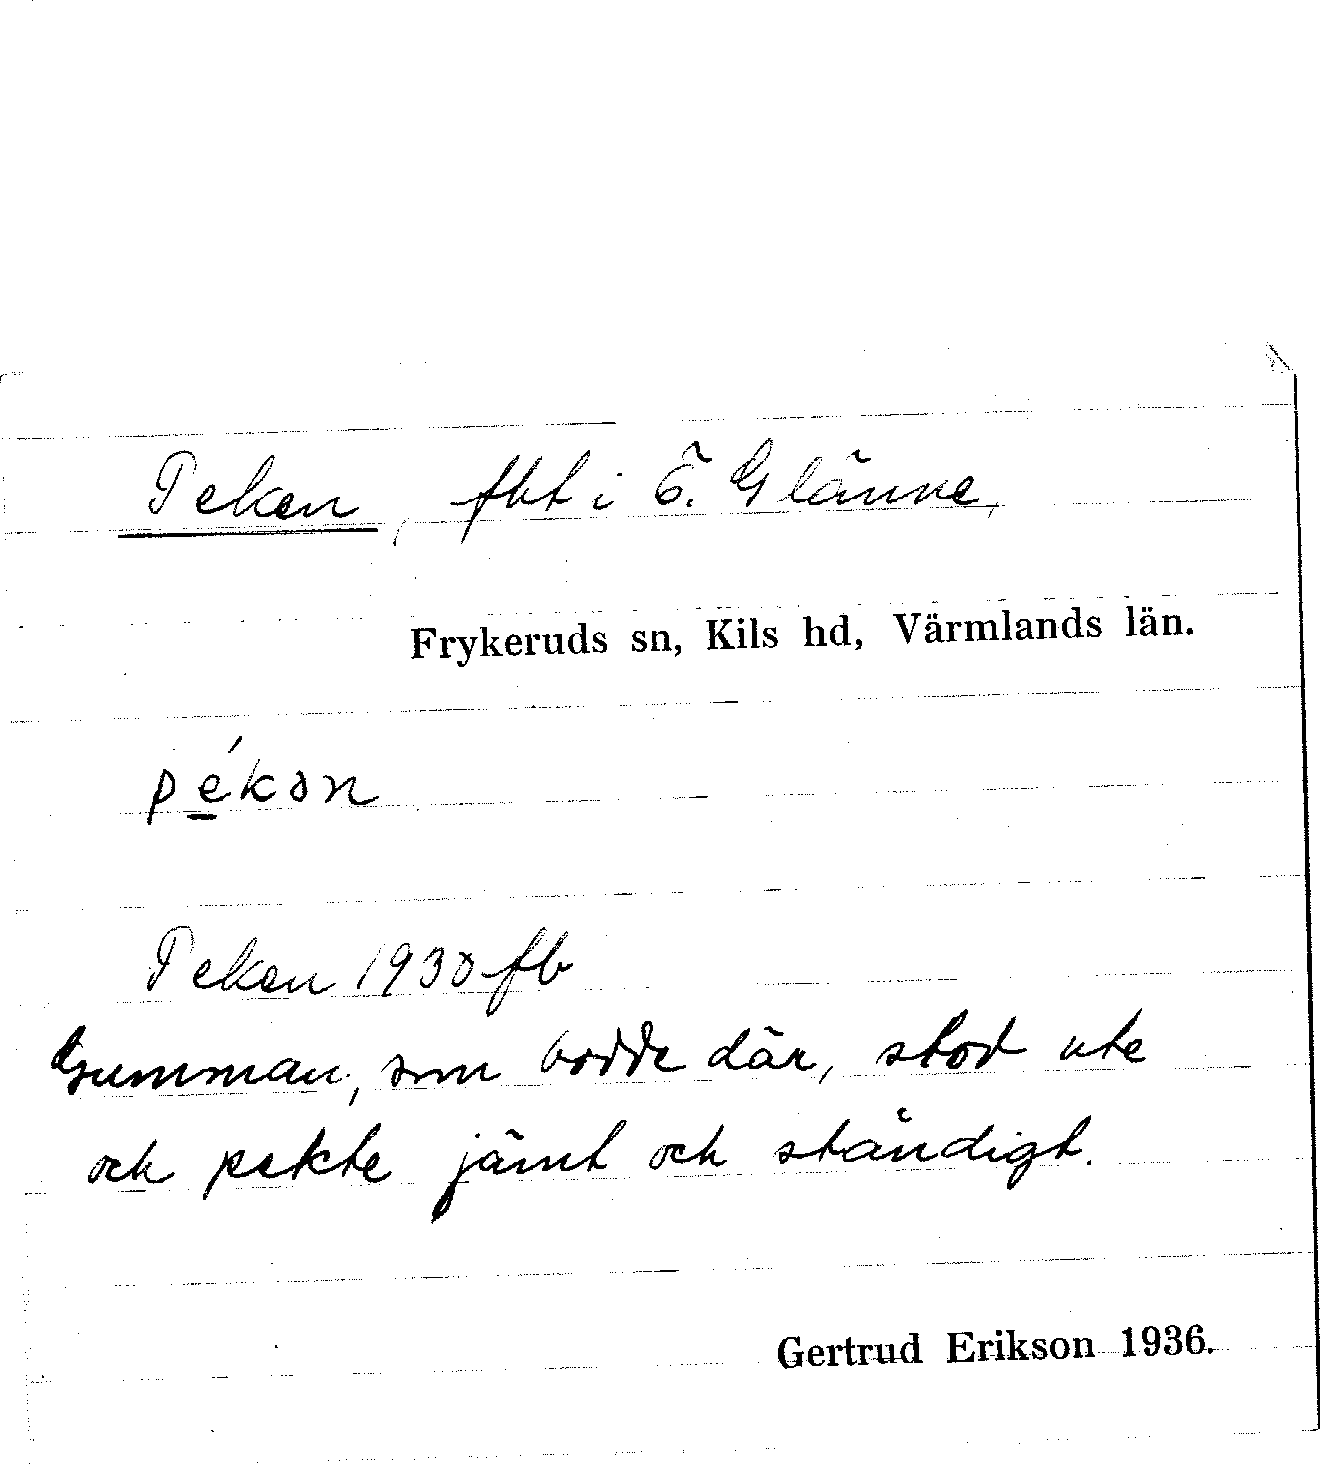 Peken, fbt i Ö. Glänne,
Frykeruds sn, Kils hd, Värmlands län.
pé̱kan
Peken 1930 fb
Gumman, som bodde där, stod ute
och pekte jämt och ständigt.
Gertrud Erikson 1936.